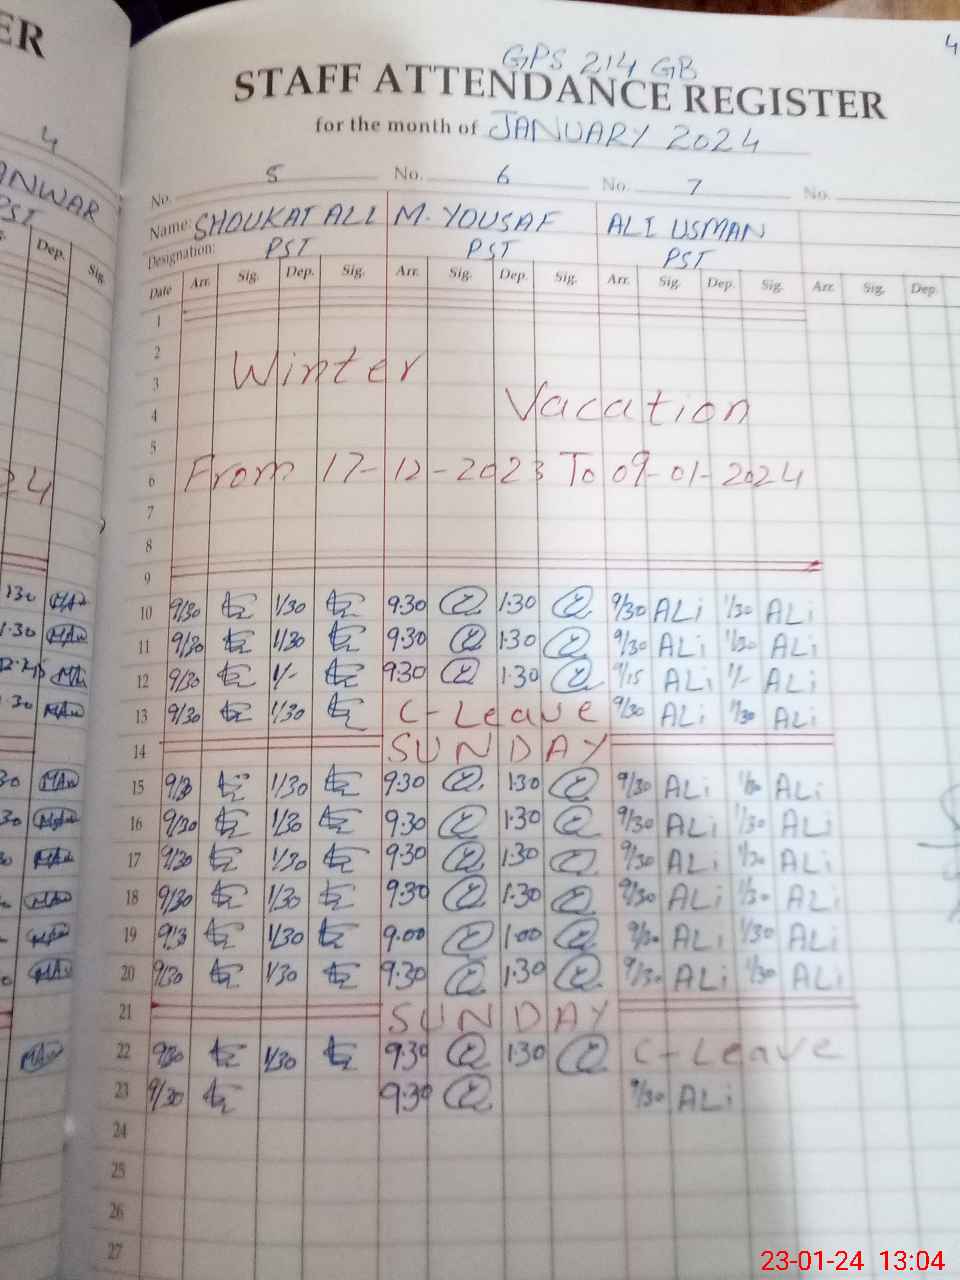 ER
4
GPS 214 GB
STAFF ATTENDANCE REGISTER
for the month of JANUARY 2024
4
ANWAR
PST
Dep. Sig.
No. 5 No. 6 No. 7 No.
Name: SHOUKAT ALI M. YOUSAF ALI USMAN
Designation: PST PST PST
Date Arr. Sig. Dep. Sig. Arr. Sig. Dep. Sig. Arr. Sig. Dep. Sig. Arr. Sig. Dep.
1
2
Winter
3
Vacation
4
5
6 From 17-12-2023 To 09-01-2024
7
8
9
10 9/30 1/30 9:30 1:30 9/30 ALi 1/30 ALi
11 9/30 1/30 9:30 1:30 9/30 ALi 1/30 ALi
12 9/30 1/- 9:30 1:30 9/15 ALi 1/- ALi
13 9/30 1/30 C-Leave 9/30 ALi 1/30 ALi
14 SUNDAY
15 9/3 1/30 9:30 1:30 9/30 ALi ALi
16 9/30 1/30 9:30 1:30 9/30 ALi 1/30 ALi
17 9/30 1/30 9:30 1:30 9/30 ALi 1/30 ALi
18 9/30 1/30 9:30 1:30 9/30 ALi 1/30 ALi
19 9/3 1/30 9.00 1.00 9/30 ALi 1/30 ALi
20 9/30 1/30 9:30 1:30 9/30 ALi 1/30 ALi
21 SUNDAY
22 9/30 1/30 9:30 1:30 C-Leave
23 9/30 9:30 9/30 ALi
24
25
26
27
23-01-24 13:04